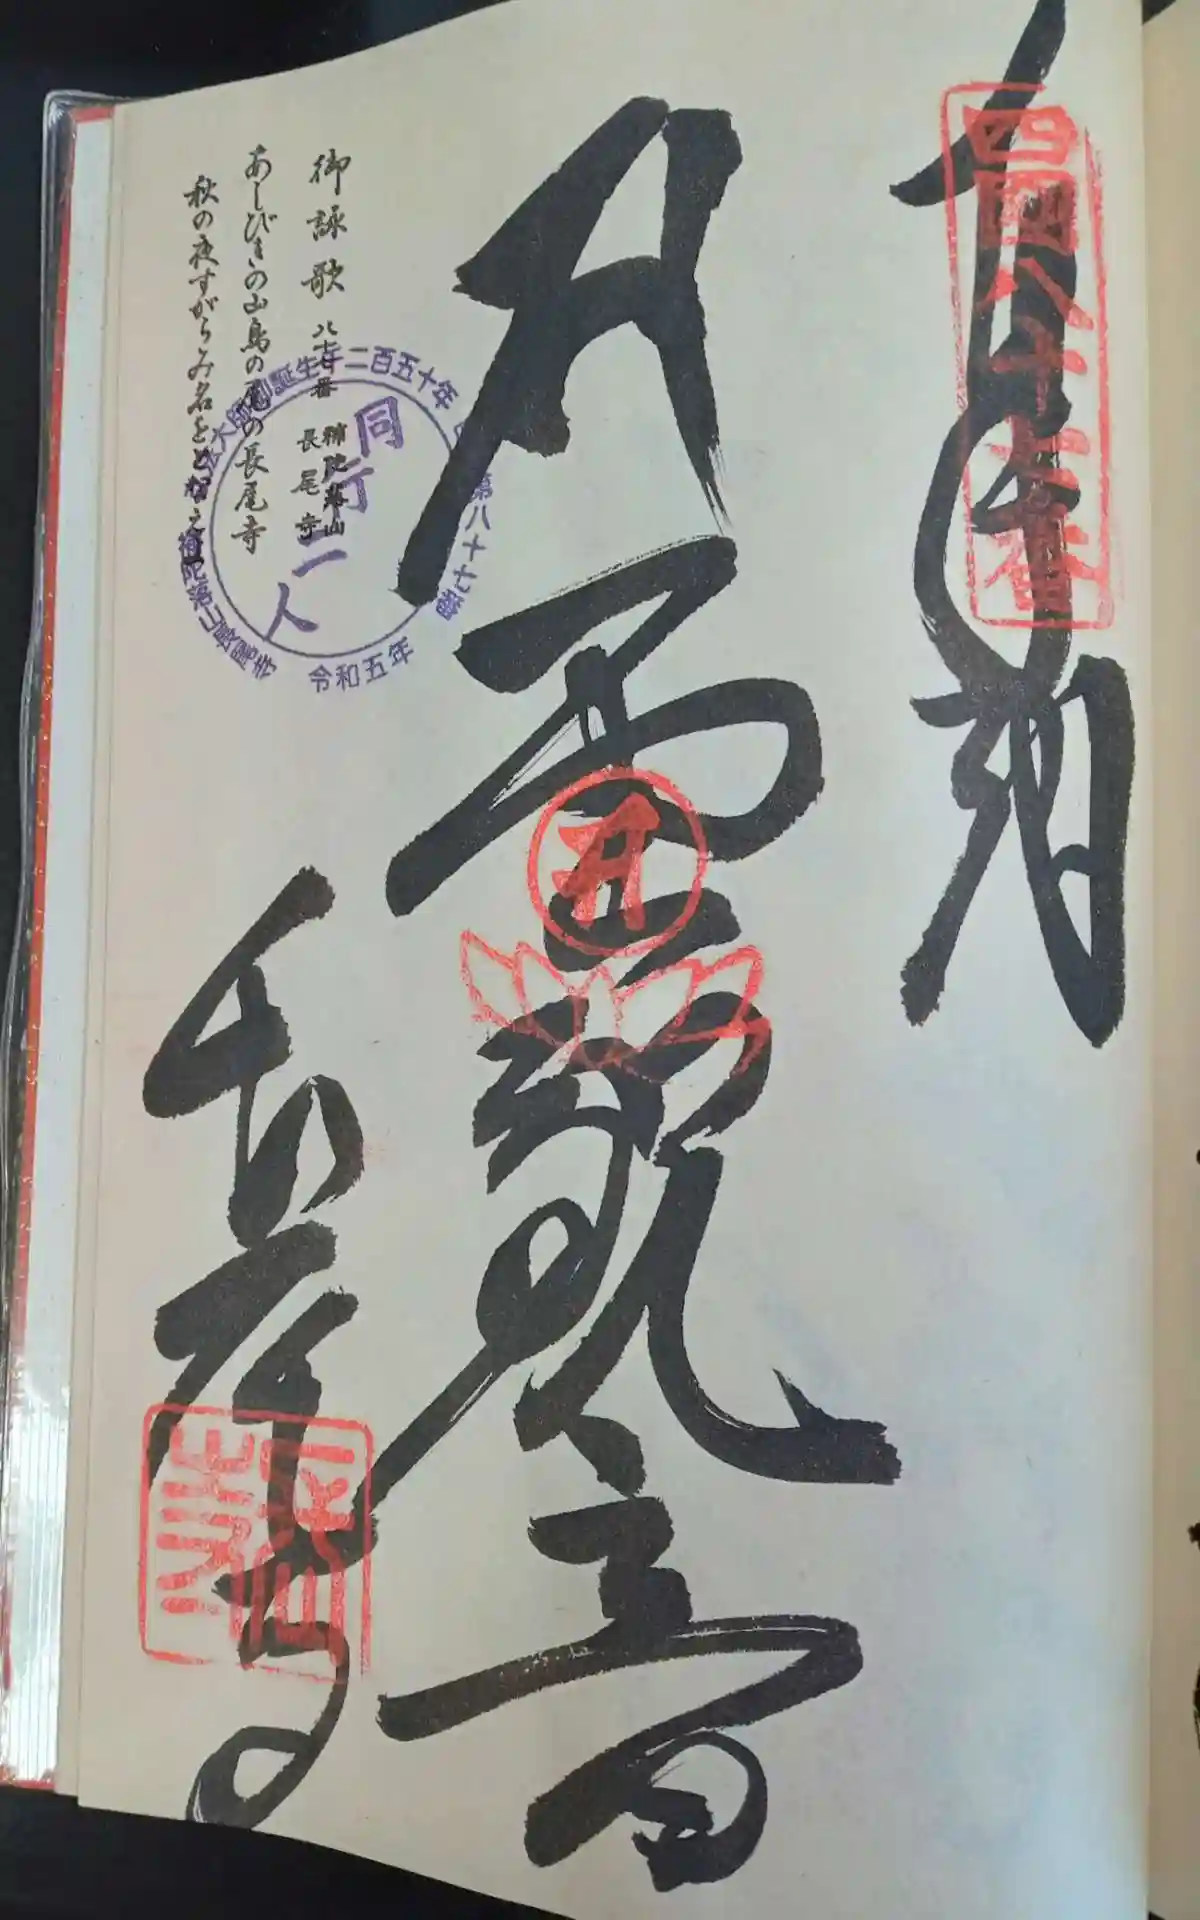 奉拝
四国八十七番
聖観音
長尾寺
御詠歌 八十七番 補陀落山 長尾寺
あしびきの山鳥の尾の長尾寺
秋の夜すがらみ名をとなえて
弘法大師御誕生千二百五十年
四国第八十七番
補陀落山長尾寺
令和五年
同行二人